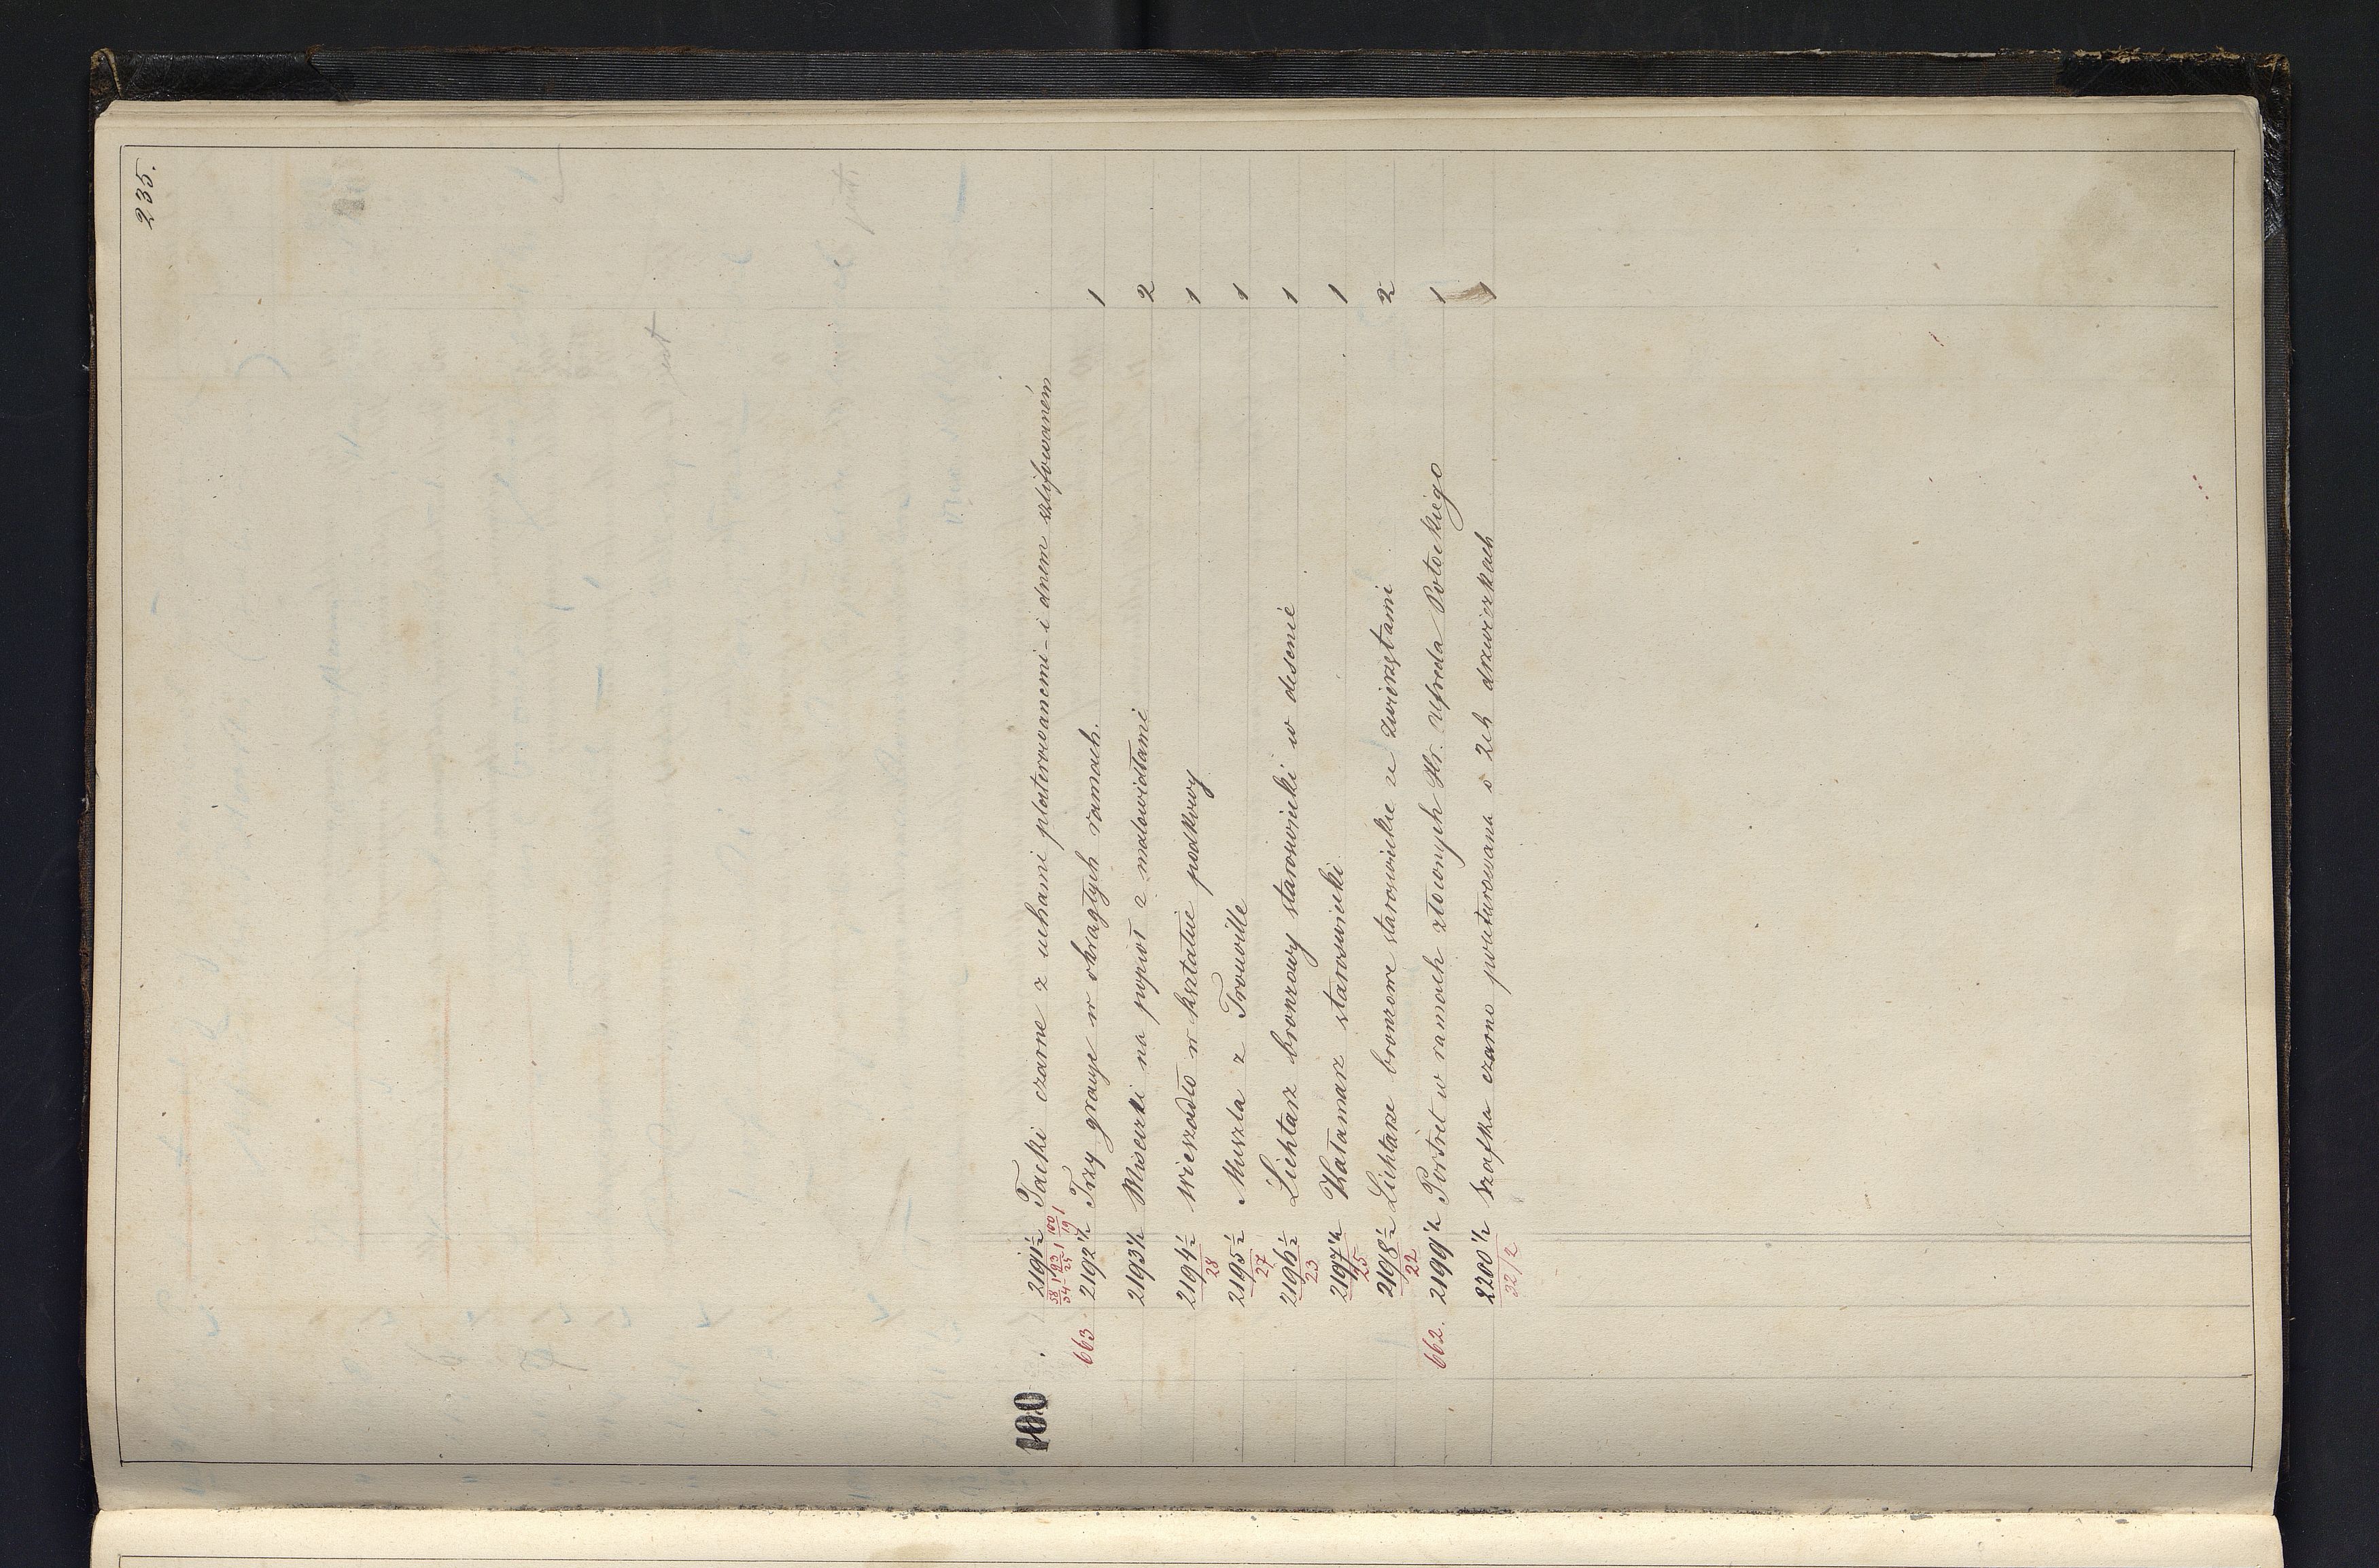 235.
100
2191½ Tacki czarne z uchami platerowanemi - i dnem szlifowaném
663. 2192½ Trzy grauje w okrągłych ramach. 1
2193½ Miseczki na popiół z malowidłami 2
2194½ Wieszadło w kształcie podkowy 1
28
2195½ Muszla z Trouville 1
27
2196½ Lichtarz bronzowy staroświecki w desenie 1
23
2197½ Kałamarz staroświecki 1
25
2198½ Lichtarze bronzowe staroświeckie ze zwierzętami 2
22
662. 2199½ Portret w ramach złoconych Hr. Alfreda Potockiego 1
2200½ Szafka czarno politurowana o 2ch drzwiczkach 1
32/2